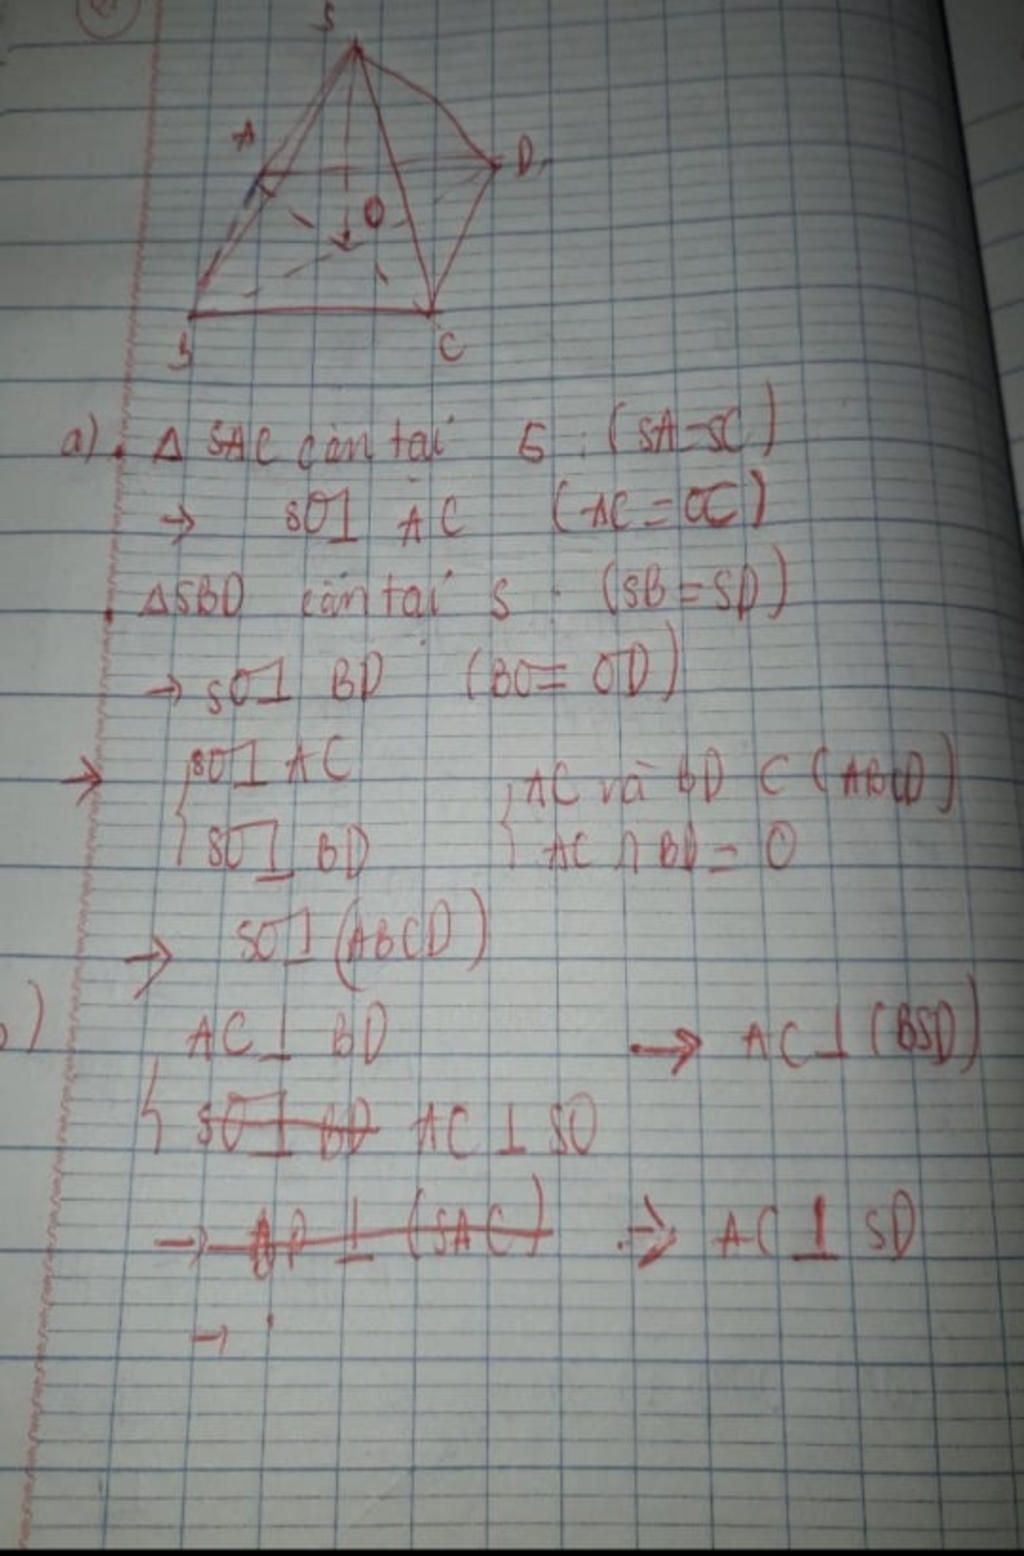 S
A
D
O
B
C
a) Δ SAC cân tại S : (SA=SC)
→ SO⊥ AC (AC = OC)
ΔSBD cân tại S : (SB=SD)
→ SO⊥ BD (BO= OD)
→ { SO⊥ AC { AC và BD ⊂ (ABCD)
SO⊥ BD AC ∩ BD = O
→ SO⊥(ABCD)
b) { AC⊥ BD → AC⊥ (BSD)
SO⊥ BD AC ⊥ SO
→ ⊥ (SAC) → AC ⊥ SD
→